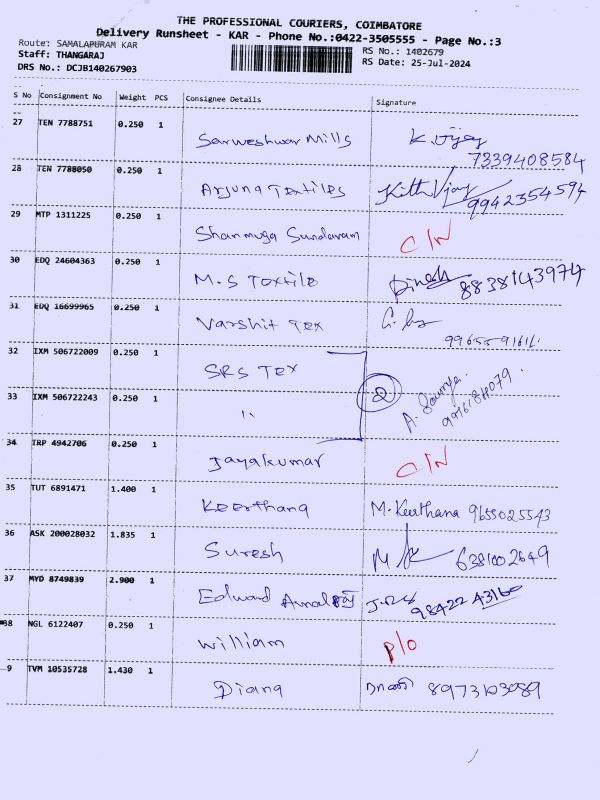 THE PROFESSIONAL COURIERS, COIMBATORE
Delivery Runsheet - KAR - Phone No.:0422-3505555 - Page No.:3
Route: SAMALAPURAM KAR
Staff: THANGARAJ
DRS No.: DCJB140267903
RS No.: 1402679
RS Date: 25-Jul-2024
S No Consignment No Weight PCS Consignee Details Signature
27 TEN 7788751 0.250 1 Sarweshwar Mills K. Vijay
7339408584
28 TEN 7788050 0.250 1 Arjuna Textiles
9942354594
29 MTP 1311225 0.250 1 Shanmuga Sundaram C/N
30 EDQ 24604363 0.250 1 M.S Textile Dinesh 8838143974
31 EDQ 16699965 0.250 1 Varshit Tex
32 IXM 506722009 0.250 1 SRS Tex
33 IXM 506722243 0.250 1 "
A. Sowmya
34 IRP 4942706 0.250 1 Jayakumar C/N
35 TUT 6891471 1.400 1 Keerthana M. Keerthana 9655025543
36 ASK 200028032 1.835 1 Suresh 6381002649
37 MYD 8749839 2.900 1 Edward 9842243160
38 NGL 6122407 0.250 1 William P/O
9 TVM 10535728 1.430 1 Diana 8973103089